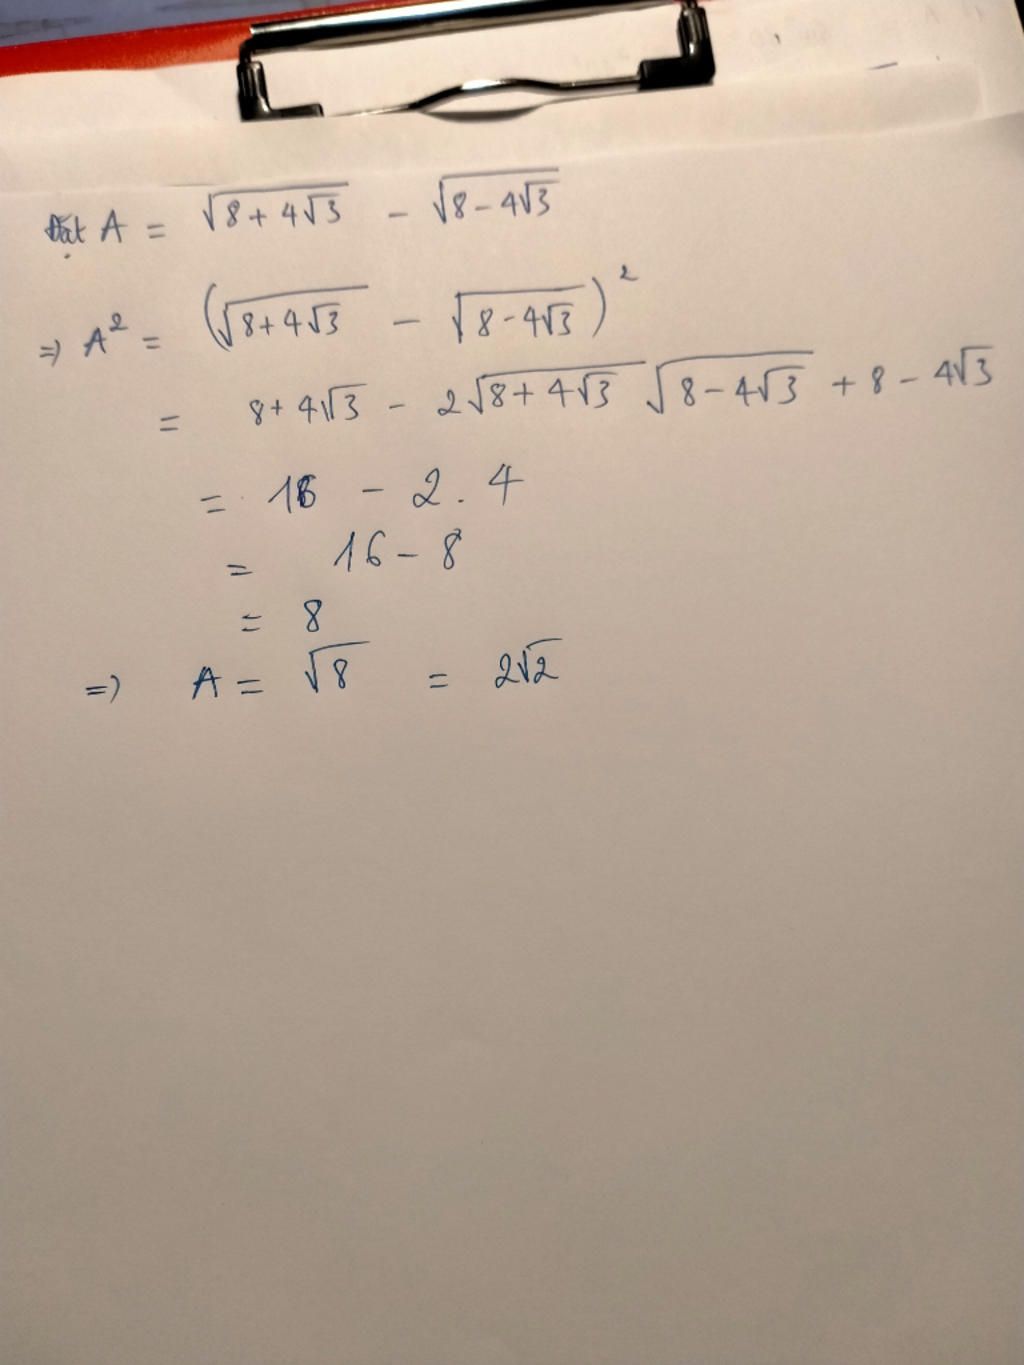 Đặt A = √(8 + 4√3) - √(8 - 4√3)
⇒ A² = (√(8 + 4√3) - √(8 - 4√3))²
= 8 + 4√3 - 2√(8 + 4√3) √(8 - 4√3) + 8 - 4√3
= 16 - 2 . 4
= 16 - 8
= 8
⇒ A = √8 = 2√2